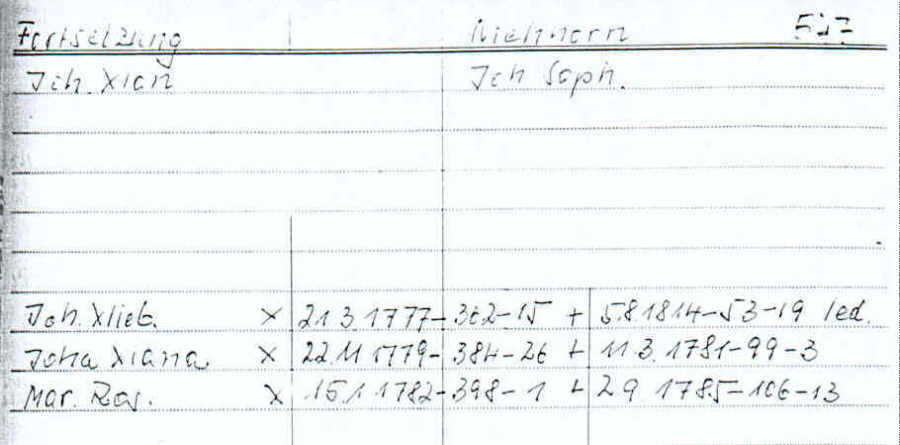 Fortsetzung
Joh. Xian Joh Soph.
Joh. Xlieb. × 21 3 1777-362-15 + 5.8 1814-53-19 led.
Joha Xiana × 22.11 1779-384-26 + 11 3. 1781-99-3
Mar. Ros. × 15.1 1782-398-1 + 2 9 1785-106-13